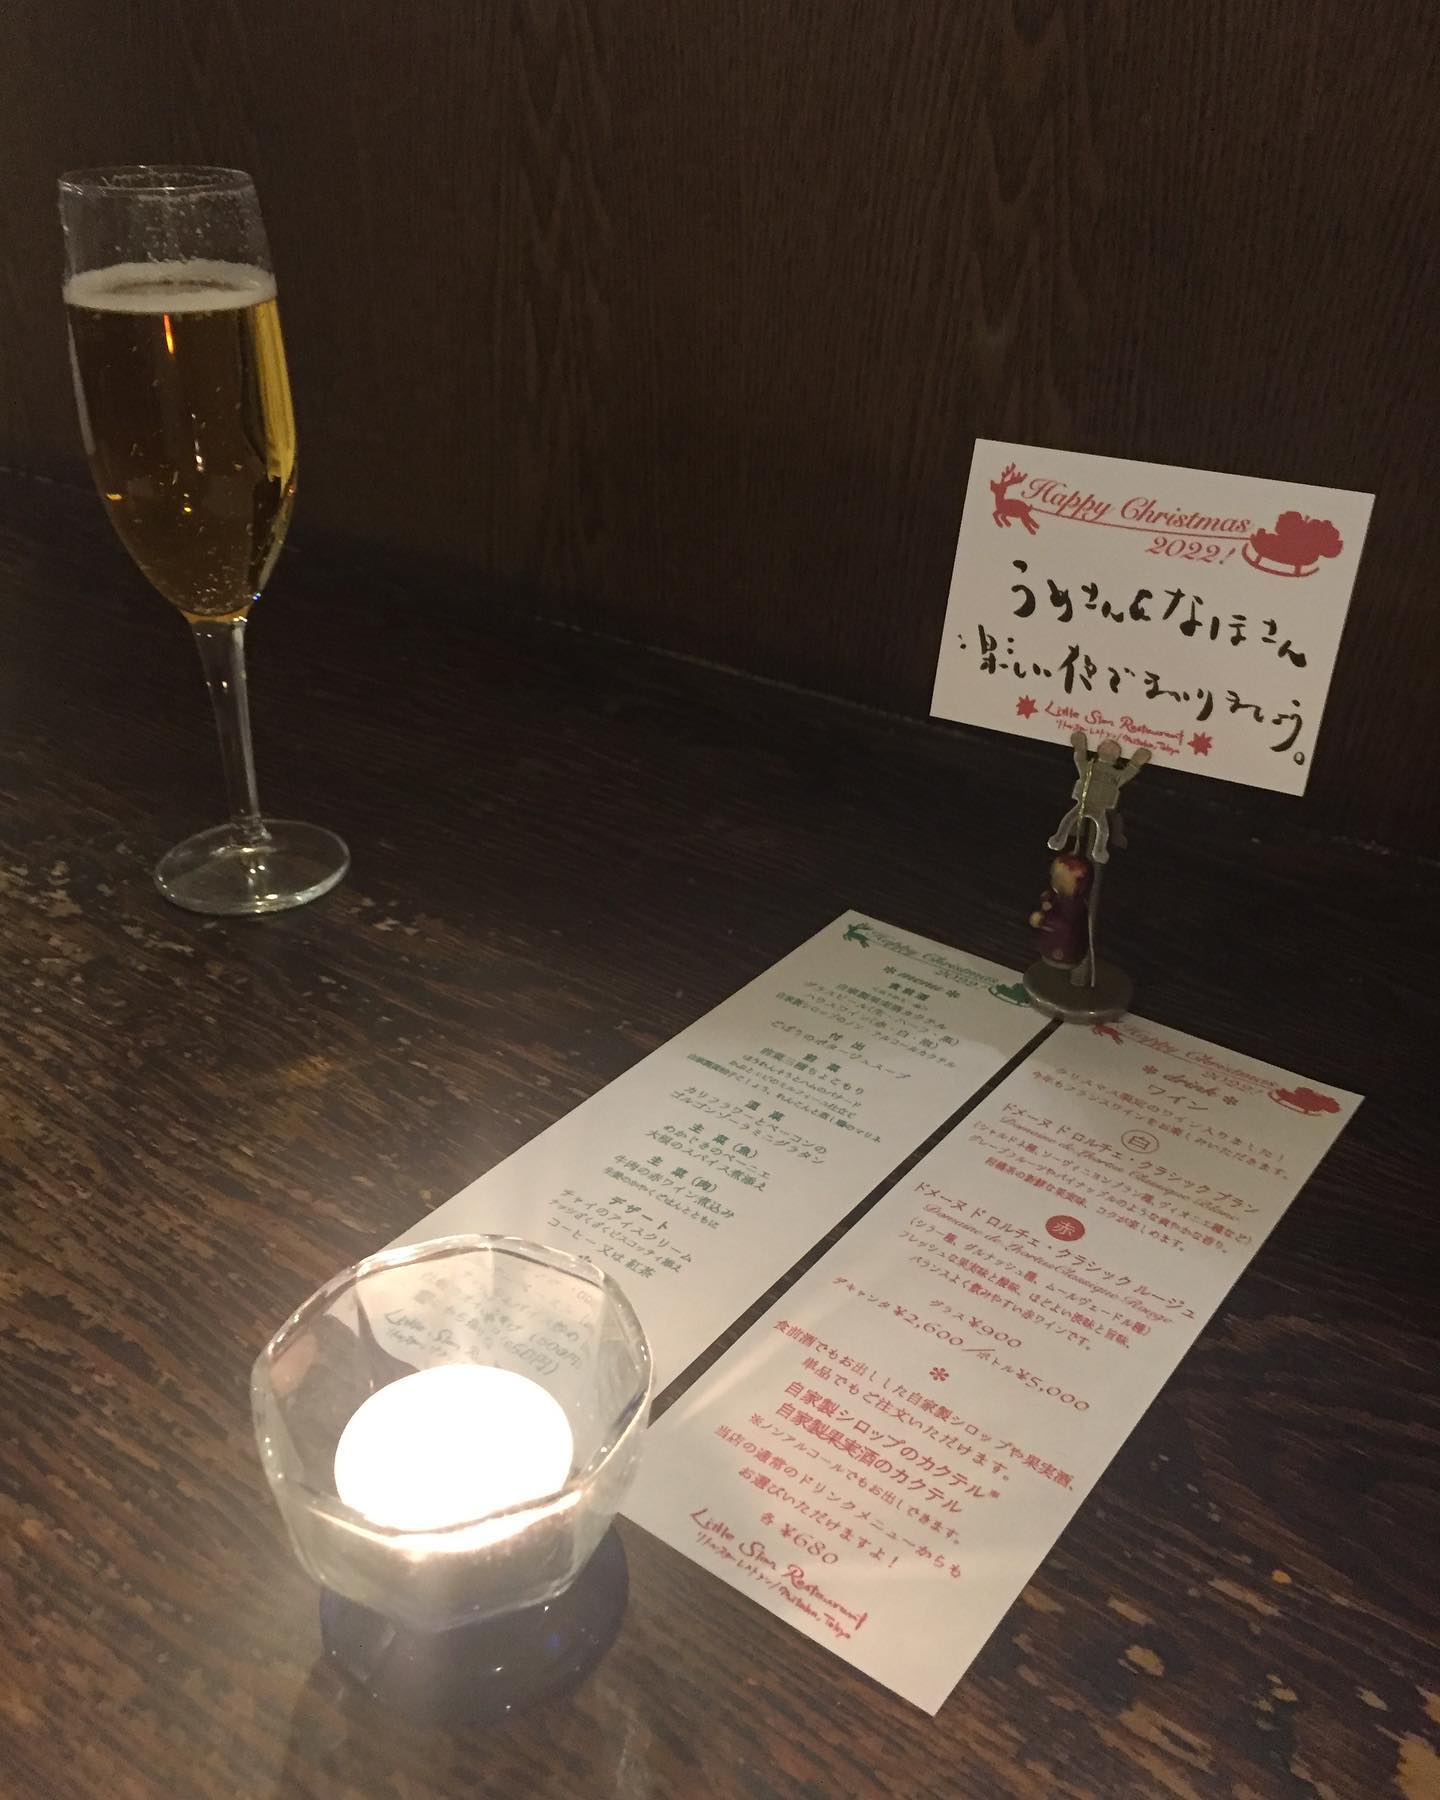 Happy Christmas
2022!
うめさん&なほさん
楽しい夜でまいりましょう。
Little Star Restaurant
リトルスターレストラン/Mitaka, Tokyo
Happy Christmas
2022!
* menu *
食前酒
自家製果実酒カクテル
グラスビール(生・ハーフ・黒)
ハウスワイン(赤・白・泡)
自家製シロップのノンアルコールカクテル
付 出
ごぼうのポタージュスープ
前 菜
前菜三種ちょこもり
温 菜
カリフラワーとベーコンの
ゴルゴンゾーラミニグラタン
主 菜(魚)
めかじきのベーニェ
大根のスパイス煮添え
主 菜(肉)
牛肉の赤ワイン煮込み
デザート
チャイのアイスクリーム
ナッツざくざくビスコッティ添え
コーヒー 又は 紅茶
Happy Christmas
2022!
* drink *
ワイン
クリスマス限定のワイン入りました!
今年もフランスワインをお楽しみいただきます。
白
ドメーヌ ド ロルチェ・クラシック ブラン
Domaine de l'hortus Classique Blanc
(シャルドネ種、ソーヴィニヨンブラン種、ヴィオニエ種など)
グレープフルーツやパイナップルのような爽やかな香り。
柑橘系の新鮮な果実味、コクが楽しめます。
赤
ドメーヌ ド ロルチェ・クラシック ルージュ
Domaine de l'hortus Classique Rouge
(シラー種、グルナッシュ種、ムールヴェードル種)
フレッシュな果実味と酸味、ほどよい渋味と旨味、
バランスよく飲みやすい赤ワインです。
グラス¥900
デキャンタ¥2,600/ボトル¥5,000
*
食前酒でもお出しした自家製シロップや果実酒、
単品でもご注文いただけます。
自家製シロップのカクテル※
自家製果実酒のカクテル
※ノンアルコールでもお出しできます。
当店の通常のドリンクメニューからも
お選びいただけますよ!
各 ¥680
Little Star Restaurant
リトルスターレストラン/Mitaka, Tokyo